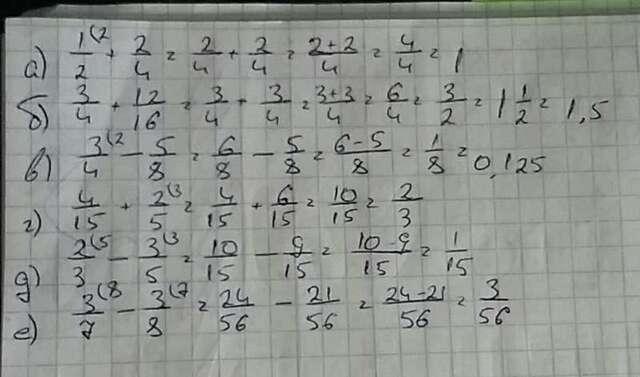 а) 1/2 (2 + 2/4 = 2/4 + 2/4 = 2+2/4 = 4/4 = 1
б) 3/4 + 12/16 = 3/4 + 3/4 = 3+3/4 = 6/4 = 3/2 = 1 1/2 = 1,5
в) 3/4 (2 - 5/8 = 6/8 - 5/8 = 6-5/8 = 1/8 = 0,125
г) 4/15 + 2/5 (3 = 4/15 + 6/15 = 10/15 = 2/3
д) 2/3 (5 - 3/5 (3 = 10/15 - 9/15 = 10-9/15 = 1/15
е) 3/7 (8 - 3/8 (7 = 24/56 - 21/56 = 24-21/56 = 3/56